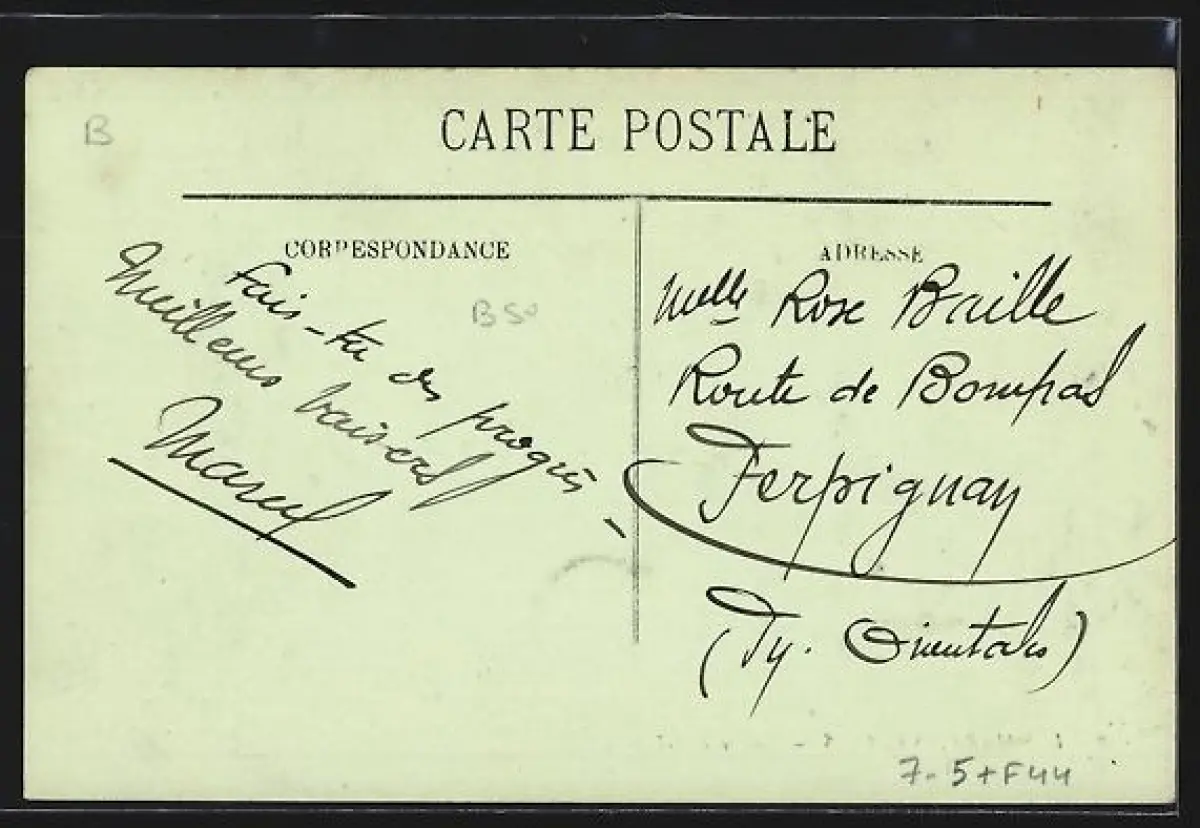 B
CARTE POSTALE
CORRESPONDANCE
Fais-tu des progrès
Meilleurs baisers
Marcel
B50
ADRESSE
Melle Rose Baille
Route de Bompas
Perpignan
(Py. Orientales)
7-5+F44